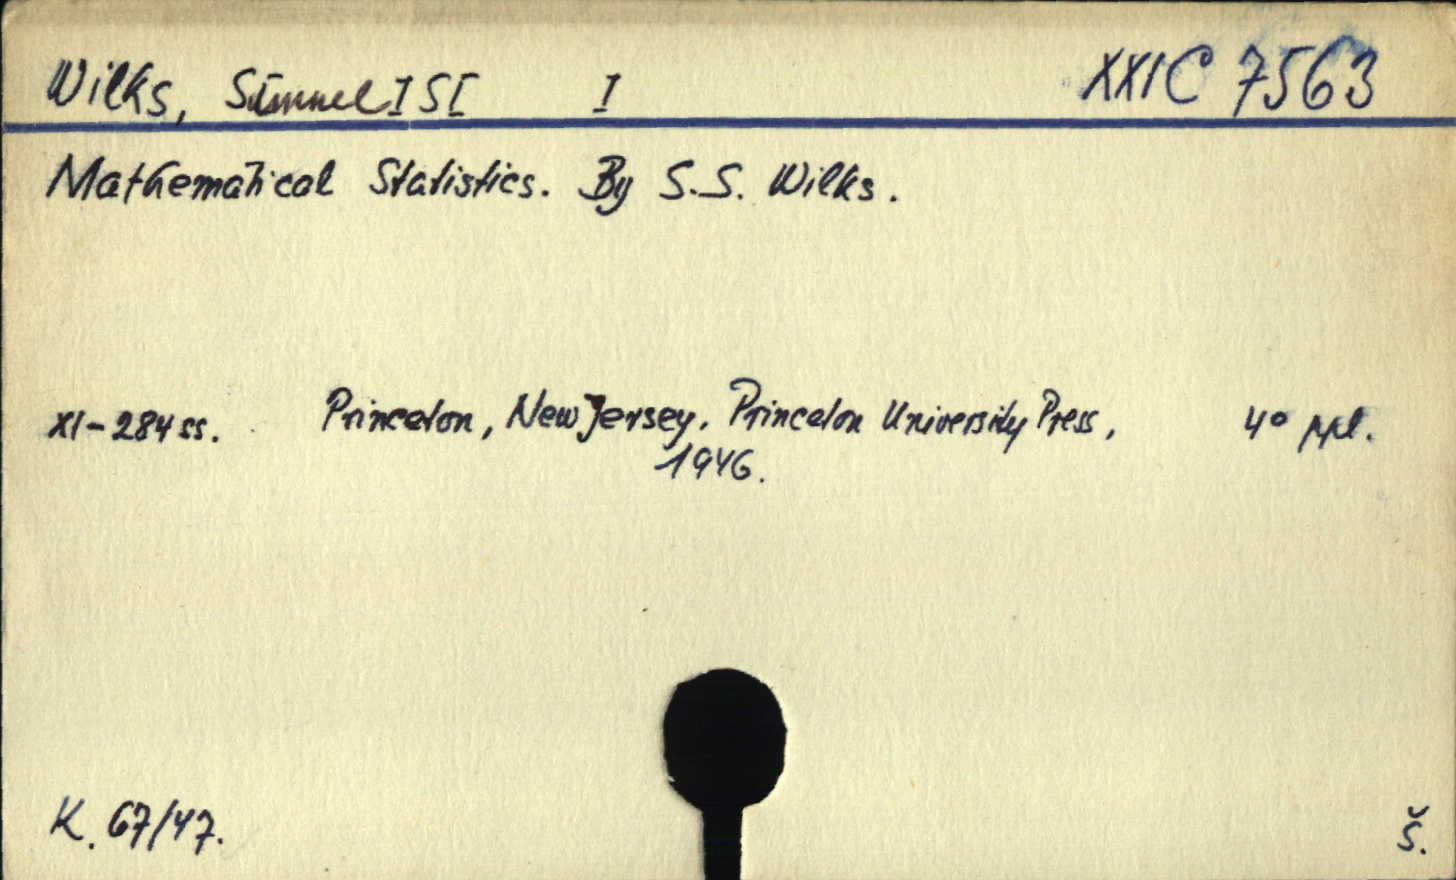 Wilks, Samuel I S I I XXI C 7563
Mathematical Statistics. By S.S. Wilks.
XI-284 ss. Princeton, New Jersey. Princeton University Press, 4° ppl.
1946.
K. 67/47. Š.